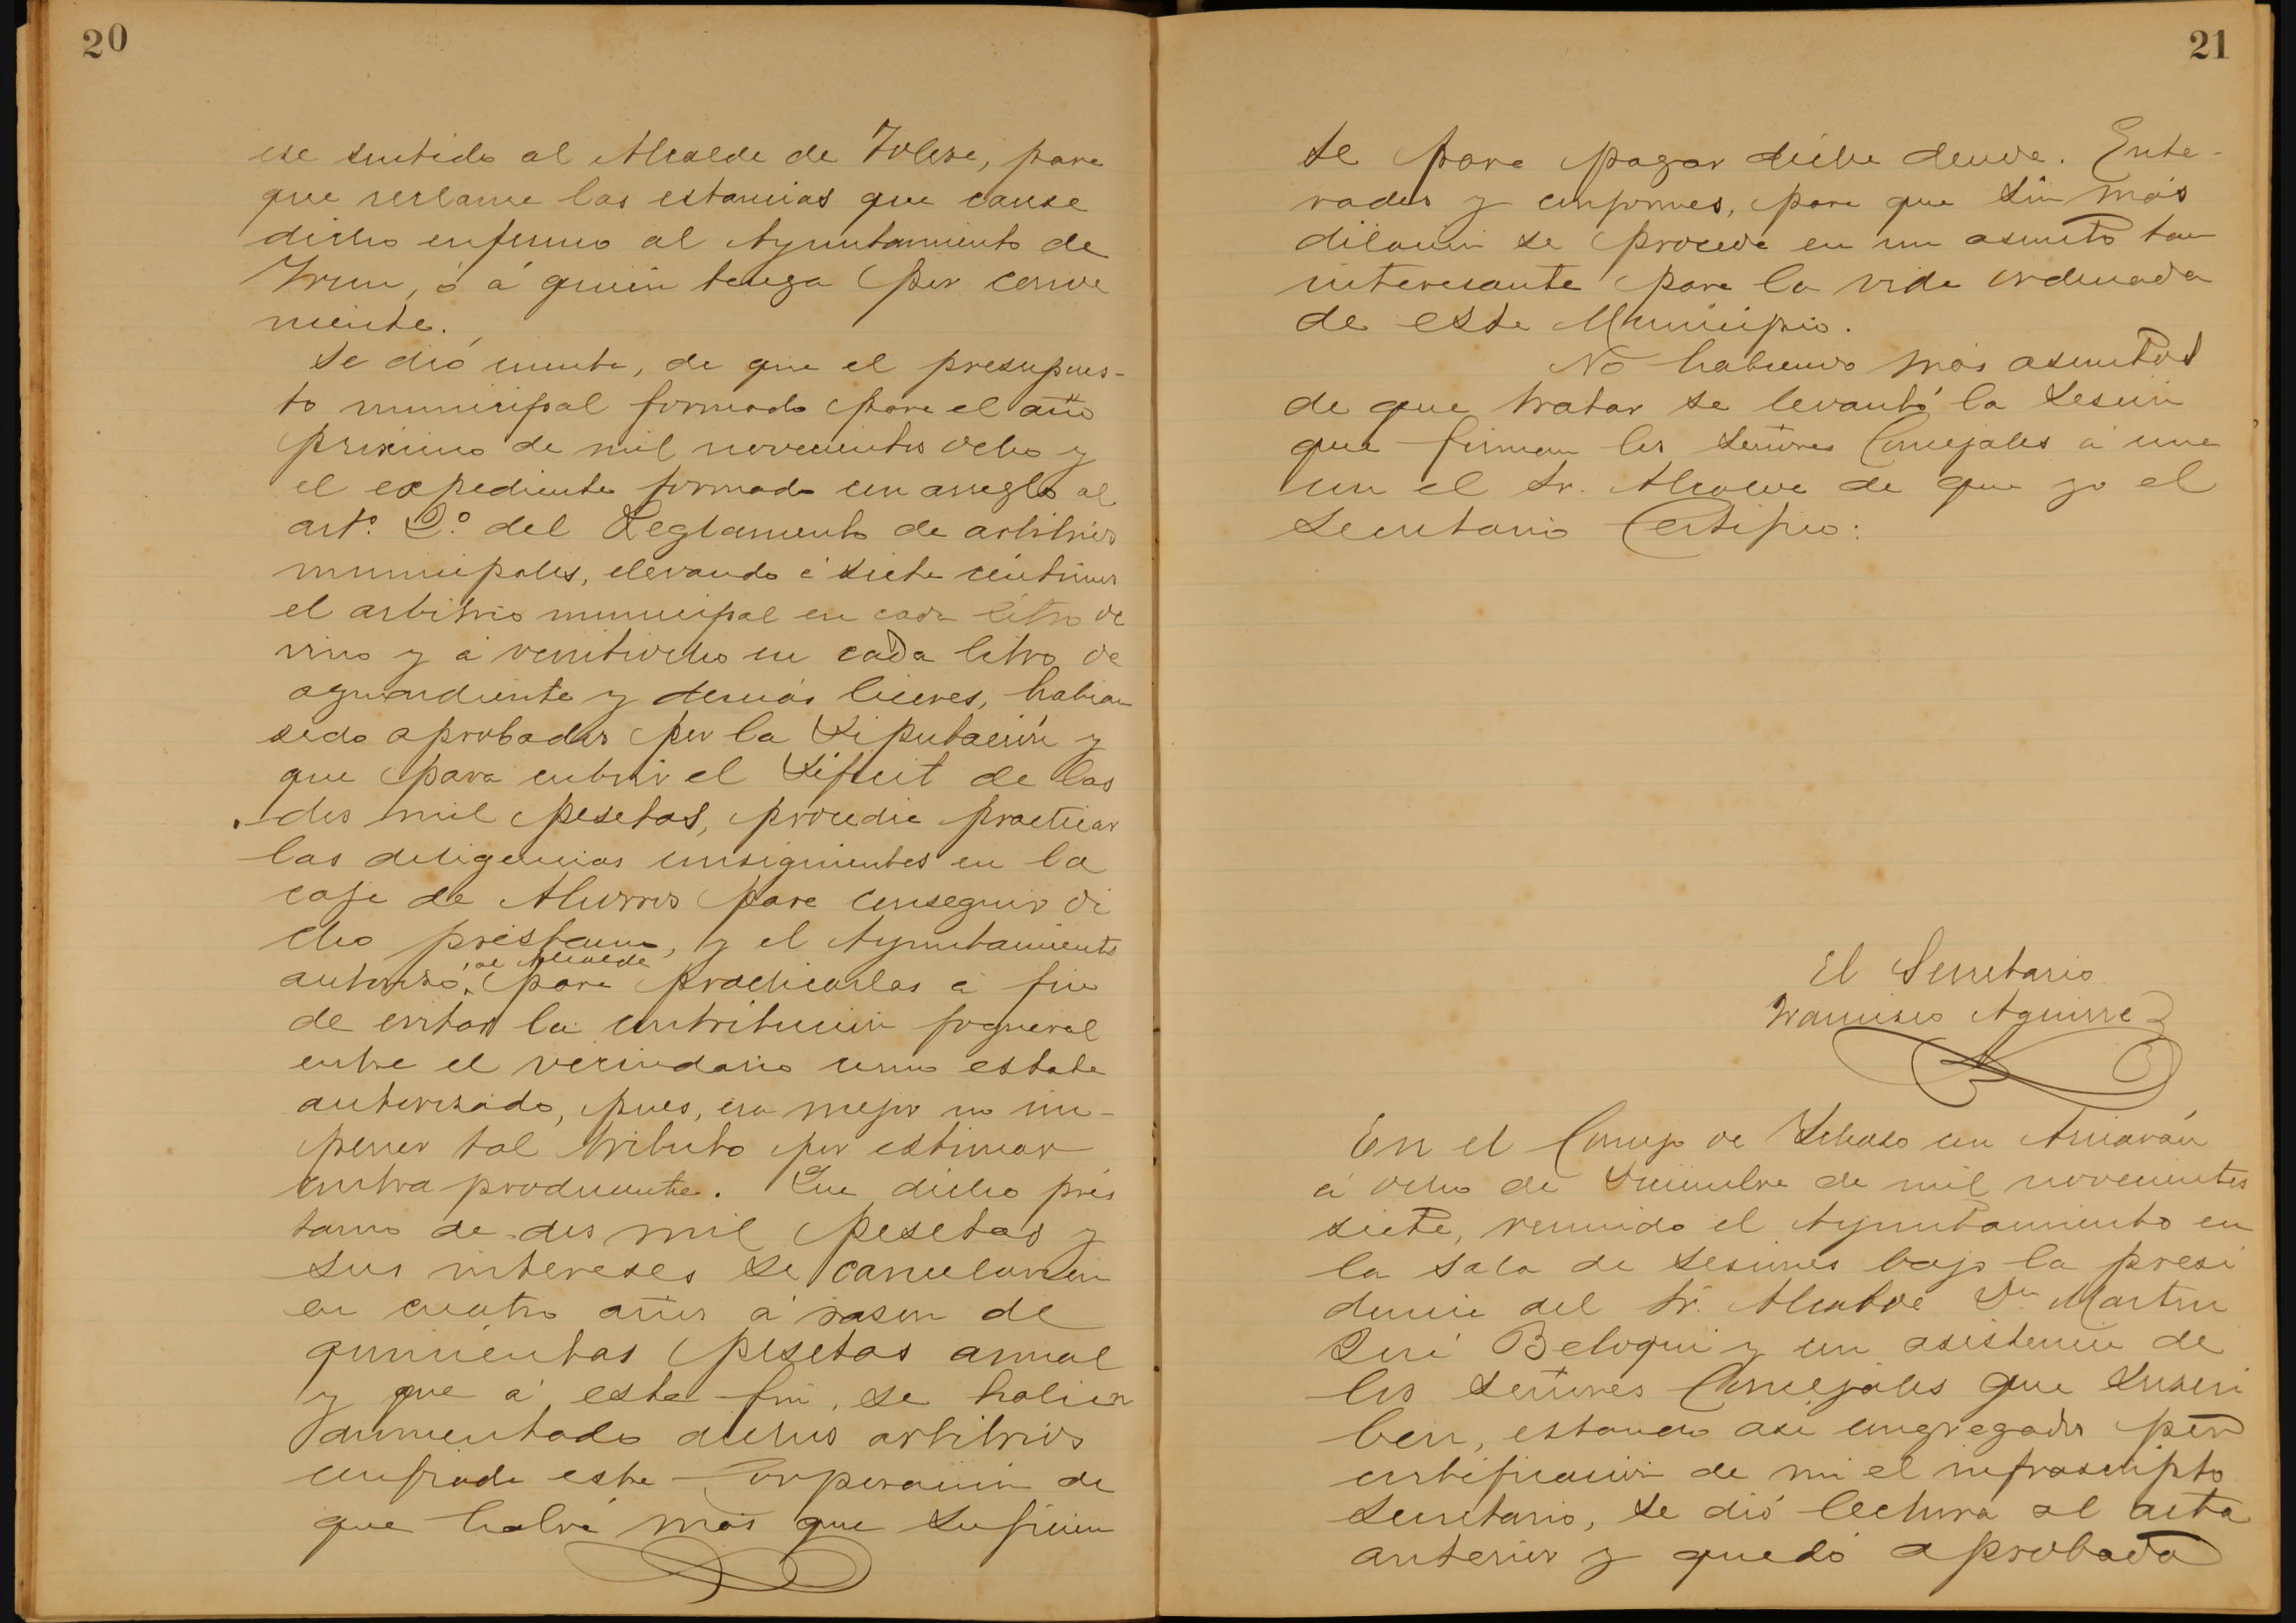 20
ese sentido al Alcalde de Tolosa, para
que reclame las estancias que cause
dicho enfermo al Ayuntamiento de
Irun, ó á quien tenga por conve
niente.
Se dió cuenta, de que el presupues-
to municipal formado para el año
próximo de mil novecientos ocho y
el expediente formado con arreglo al
artº. 2º. del Reglamento de arbitrios
municipales, elevando á siete céntimos
el arbitrio municipal en cada litro de
vino y á veintiocho en cada litro de
aguardiente y demás licores, habian
sido aprobados por la Diputación y
que para cubrir el Déficit de las
dos mil pesetas, procedia practicar
las diligencias consiguientes en la
caja de Ahorros para conseguir di
cho préstamo, y el Ayuntamiento
autorizó, al Alcalde para practicarlas á fin
de evitar la contribución fogueral
entre el vecindario como estaba
autorizado, pues, era mejor no im-
poner tal tributo por estimar
contra producente. Que dicho prés
tamo de dos mil pesetas y
sus intereses se cancelarán
en cuatro años á rason de
quinientas pesetas anual
y que á este fin, se habian
aumentado dichos arbitrios
confiada esta Corporación de
que habrá más que suficien
21
te para pagar dicha deuda. Ente-
rados y conformes, para que sin más
dilación se proceda en un asunto tan
interesante para la vida ordenada
de este Municipio.
No habiendo más asuntos
de que tratar se levantó la Sesión
que firman los Señores Concejales á una
con el Sr. Alcalde de que yo el
Secretario Certifico:
El Secretario
Francisco Aguirre
En el Concejo de Ichaso en Arriarán
á ocho de Diciembre de mil novecientos
siete, reunido el Ayuntamiento en
la Sala de Sesiones bajo la presi
dencia del Sr. Alcalde Dn Martin
José Beloqui y con asistencia de
los Señores Concejales que suscri
ben, estando asi congregados por
certificación de mi el infrascripto
Secretario, se dió lectura al acta
anterior y quedó aprobada